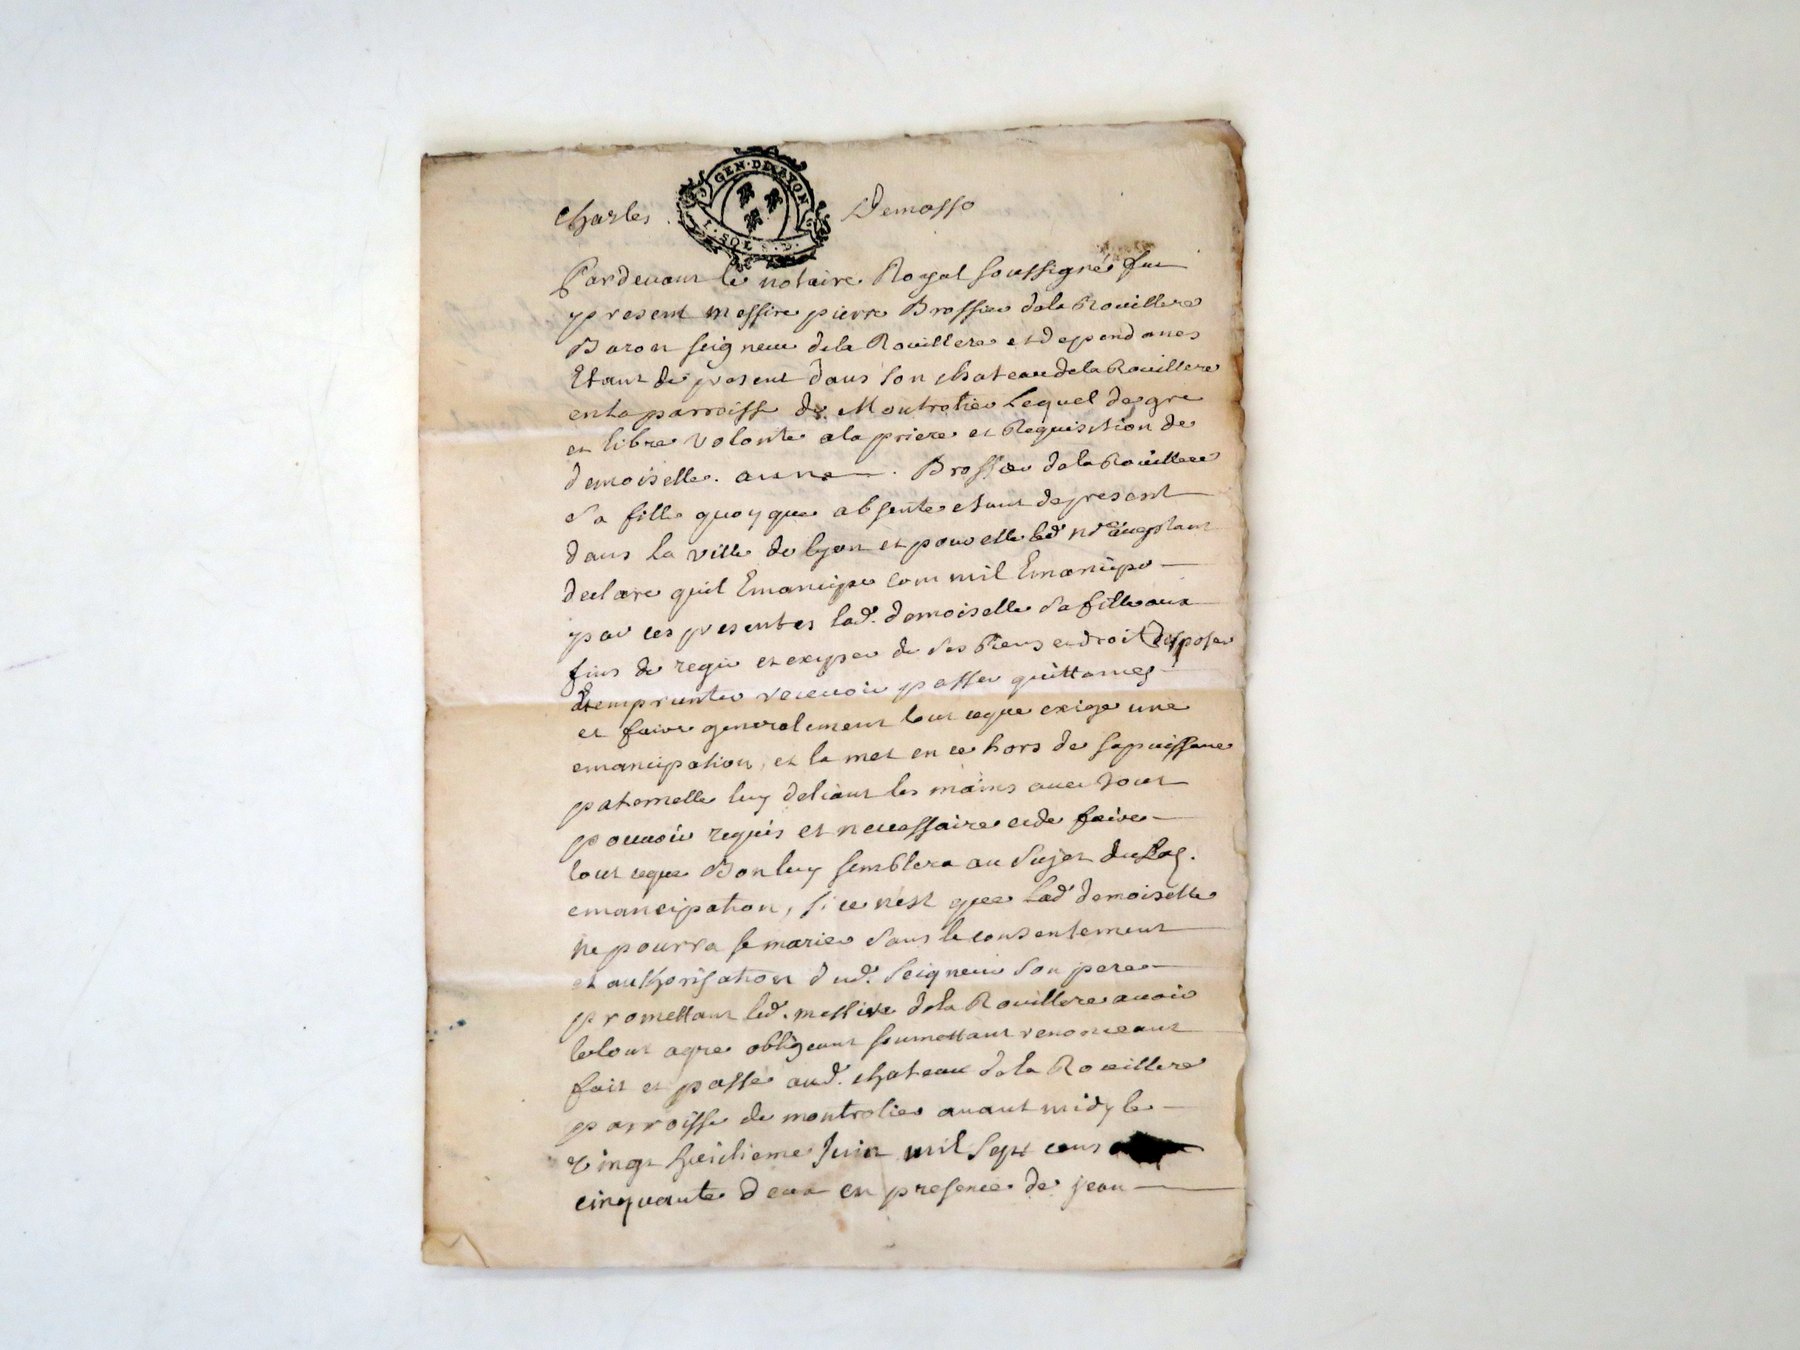 GEN·DE LYON
Charles Demasso
I·SOL
Pardevant le notaire Royal soussigné fut
present messire pierre Brossier dela Rouillere
Baron seigneur dela Rouillere et dependances
Etant de present dans son chateau dela Rouillere
en la parroisse de Montrotier Lequel de gre
et libre volonte a la priere et Requisition de
demoiselle. anne Brossier dela Rouillere
sa fille quoy que absente etant de present
dans la ville de lyon et pour elle led nre aceptant
declare quil Emancipe comm il Emancipe
par ces presentes lad. demoiselle sa fille aux
fins de regir et exiger de ses Biens et droit disposer
Emprunter recevoir passer quittances
et faire generalement tout ceque exige une
emancipation, et la met en ce hors de sa puissance
paternelle luy deliant les mains avec tout
pouvoir requis et necessaire et de faire
tout ceque Bon luy semblera au sujet de lad.
emancipation, si ce nest que lad demoiselle
ne pourra se marier sans le consentement
et authorisation dud. seigneur son pere
promettant led. messire dela Rouillere avoir
le tout agre obligeant soumettant renonceant
fait et passé aud. chateau dela Rouillere
parroisse de montrotier avant midy le
vingt huitieme Juin mil sept cens
cinquante deux en presence de jean